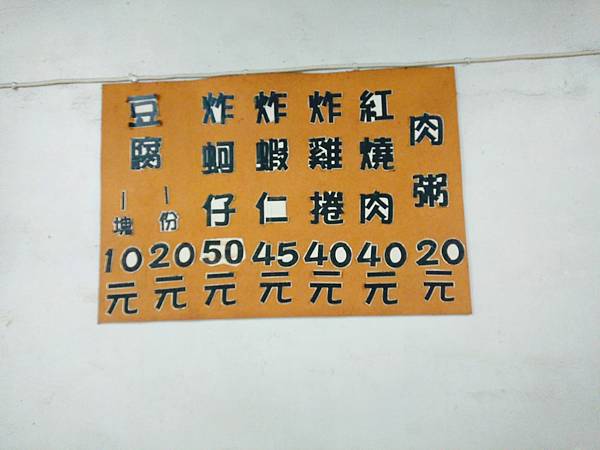 肉粥
20元
紅燒肉
40元
炸雞捲
40元
炸蝦仁
45元
炸蚵仔
50元
豆腐
一份
20元
一塊
10元